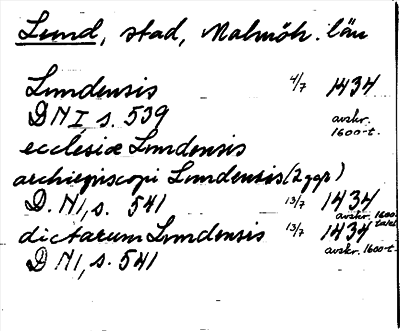 Lund, stad, Malmöh. län
Lundensis 4/7 1434
D N I s. 539 avskr. 1600-t.
ecclesiæ Lundensis
archiepiscopi Lundensis (2 ggr)
D. N I, s. 541 13/7 1434 avskr. 1600-talet
dictarum Lundensis 13/7 1434
D N I, s. 541 avskr. 1600-t.